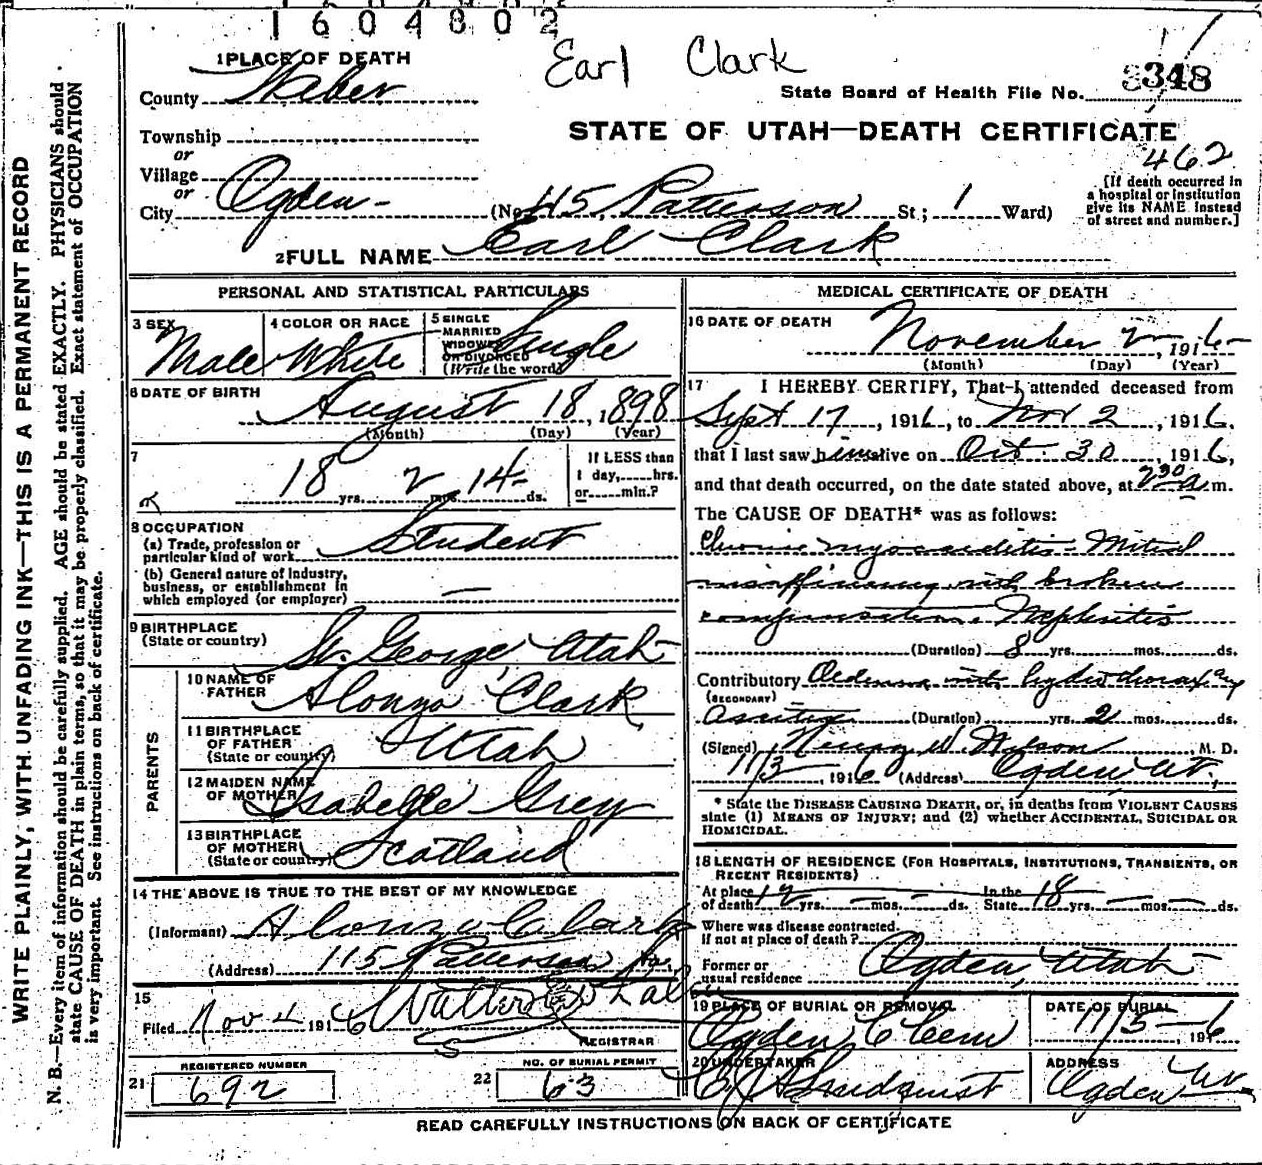 1604802
Earl Clark
1 PLACE OF DEATH
County Weber
State Board of Health File No. 348
STATE OF UTAH—DEATH CERTIFICATE
462
Township
or
Village
or
City Ogden (No. 115 Patterson St; 1 Ward)
[If death occurred in a hospital or institution give its NAME instead of street and number.]
2 FULL NAME Earl Clark
PERSONAL AND STATISTICAL PARTICULARS
3 SEX Male
4 COLOR OR RACE White
5 SINGLE MARRIED WIDOWED OR DIVORCED (Write the word) Single
6 DATE OF BIRTH
August 18, 1898
(Month) (Day) (Year)
7
18 yrs. 2 mos. 14 ds.
If LESS than 1 day, hrs. or min.?
8 OCCUPATION
(a) Trade, profession or particular kind of work Student
(b) General nature of industry, business, or establishment in which employed (or employer) —
9 BIRTHPLACE (State or country) St. George Utah
PARENTS
10 NAME OF FATHER Alonzo Clark
11 BIRTHPLACE OF FATHER (State or country) Utah
12 MAIDEN NAME OF MOTHER Isabelle Grey
13 BIRTHPLACE OF MOTHER (State or country) Scotland
14 THE ABOVE IS TRUE TO THE BEST OF MY KNOWLEDGE
(Informant) Alonzo Clark
(Address) 115 Patterson Av.
15
Filed Nov 4 1916 Walter
REGISTRAR
21 REGISTERED NUMBER 692
22 NO. OF BURIAL PERMIT 63
MEDICAL CERTIFICATE OF DEATH
16 DATE OF DEATH
November 2, 1916
(Month) (Day) (Year)
17 I HEREBY CERTIFY, That I attended deceased from
Sept 17, 1916, to Nov 2, 1916,
that I last saw him alive on Oct. 30, 1916,
and that death occurred, on the date stated above, at 2 30 a m.
The CAUSE OF DEATH* was as follows:
Chronic myocarditis - Mitral
insufficiency with broken
compensation. Nephritis
(Duration) 8 yrs. mos. ds.
Contributory Oedema with hydrothorax any
(SECONDARY)
Ascitis (Duration) yrs. 2 mos. ds.
(Signed) Henry W. Nelson, M. D.
11/3, 1916 (Address) Ogden Ut.
* State the DISEASE CAUSING DEATH, or, in deaths from VIOLENT CAUSES
state (1) MEANS OF INJURY; and (2) whether ACCIDENTAL, SUICIDAL OR
HOMICIDAL.
18 LENGTH OF RESIDENCE (FOR HOSPITALS, INSTITUTIONS, TRANSIENTS, OR
RECENT RESIDENTS)
At place of death 12 yrs. — mos. — ds. In the State 18 yrs. — mos. — ds.
Where was disease contracted.
If not at place of death?
Former or usual residence Ogden, Utah
19 PLACE OF BURIAL OR REMOVAL
Ogden C Cem
DATE OF BURIAL
11/5-6, 191
20 UNDERTAKER
Lindquist
ADDRESS
Ogden Ut
READ CAREFULLY INSTRUCTIONS ON BACK OF CERTIFICATE
WRITE PLAINLY, WITH UNFADING INK—THIS IS A PERMANENT RECORD
N. B.—Every item of information should be carefully supplied. AGE should be stated EXACTLY. PHYSICIANS should
state CAUSE OF DEATH in plain terms, so that it may be properly classified. Exact statement of OCCUPATION
is very important. See instructions on back of certificate.